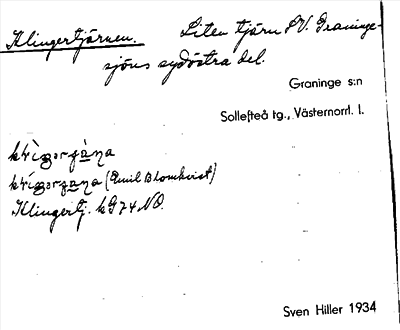 Klingertjärnen. Liten tjärn SV. Graninge-
sjöns sydöstra del.
Graninge s:n
Sollefteå tg., Västernorrl. l.
(Emil Blomkvist)
Klingertj. k G74 NO.
Sven Hiller 1934